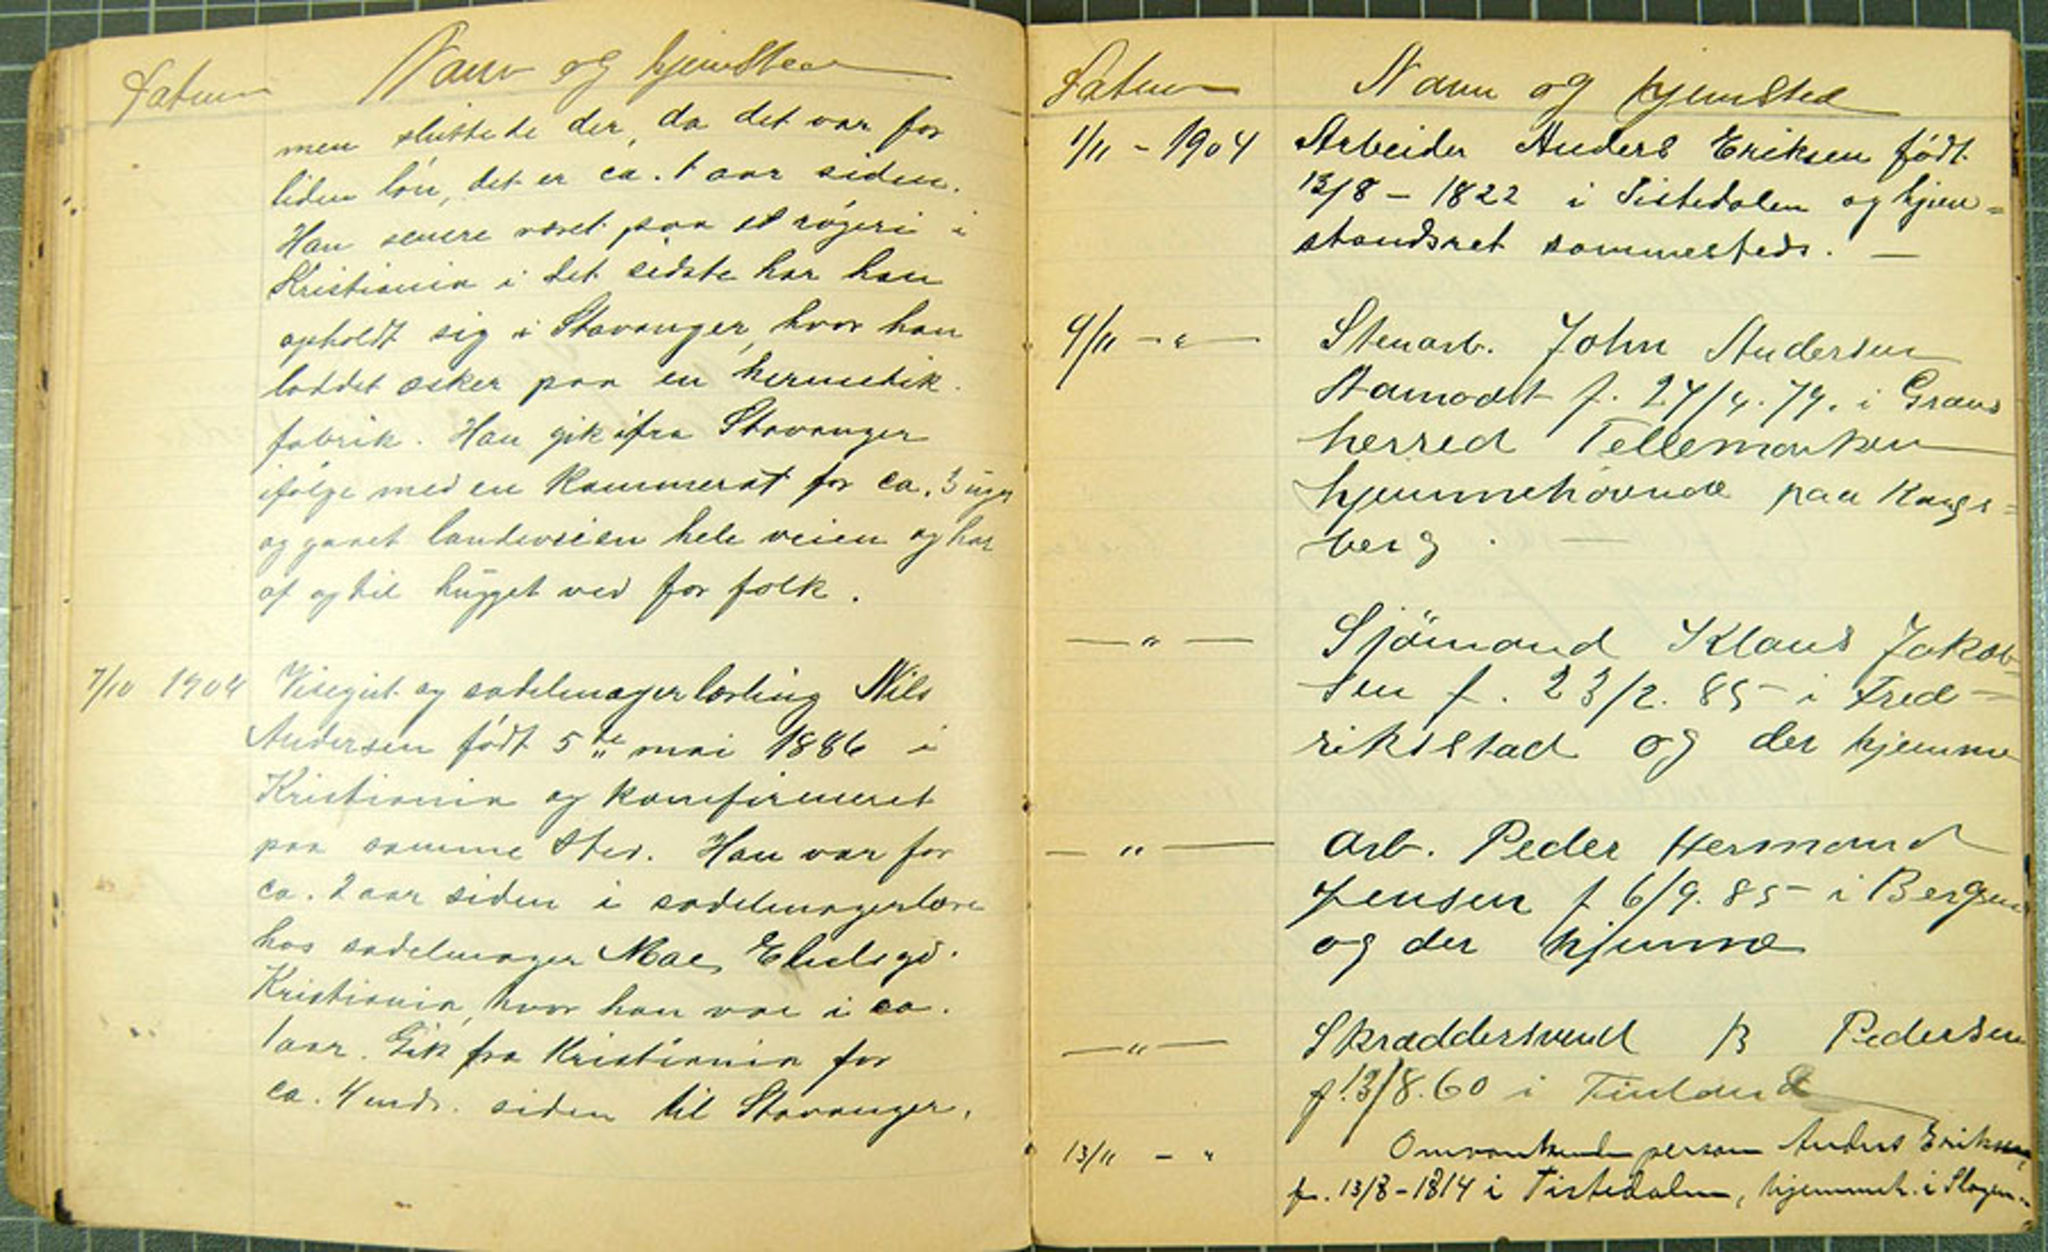 Datum Navn og hjemsted
men sluttede der, da det var for
liden løn, det er ca. 1 aar siden.
Han senere været paa et røgeri i
Kristiania i det sidste har han
opholdt sig i Stavanger, hvor han
loddet æsker paa en hermetik
fabrik. Han gik ifra Stavanger
ifølge med en kammerat for ca. 3 uger
og gaaet landeveien hele veien og har
af og til hugget ved for folk.
7/10 1904 Visegut og sadelmagerlærling Nils
Andersen født 5te mai 1886 i
Kristiania og konfirmeret
paa samme sted. Han var for
ca. 2 aar siden i sadelmagerlære
hos sadelmager
Kristiania, hvor han var i ca.
1 aar. Gik fra Kristiania for
ca. 4 mdr. siden til Stavanger,
Datum Navn og hjemsted
1/11 - 1904 Arbeider Anders Eriksen født
13/8 - 1822 i Tistedalen og hjem=
standsret sammesteds. —
9/11 - " - Stenarb. John Andersen
f. 24/4. 79. i Grans
herred Tellemarken
hjemmehørende paa Kongs=
berg. —
- " - Sjömand Klaus Jakob-
sen f. 23/2. 85 - i Fred-
rikstad og der hjemme
- " - Arb. Peder Hermand
Jensen f 6/9. 85 - i Bergen
og der hjemme
- " - Skræddersvend B Pedersen
f. 13/8. 60 i Finland
13/11 - " Omvankende person Anders Eriksen,
f. 13/8 - 1814 i Tistedalen, hjemmeh. i Skogen.